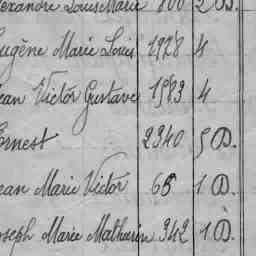 lexandre Louis Marie 800 2 D.
Eugène Marie Louis 1928 4
Jean Victor Gustave 1983 4
Ernest 2340 5 D.
Jean Marie Victor 65 1 D.
Joseph Marie Mathurin 342 1 D.